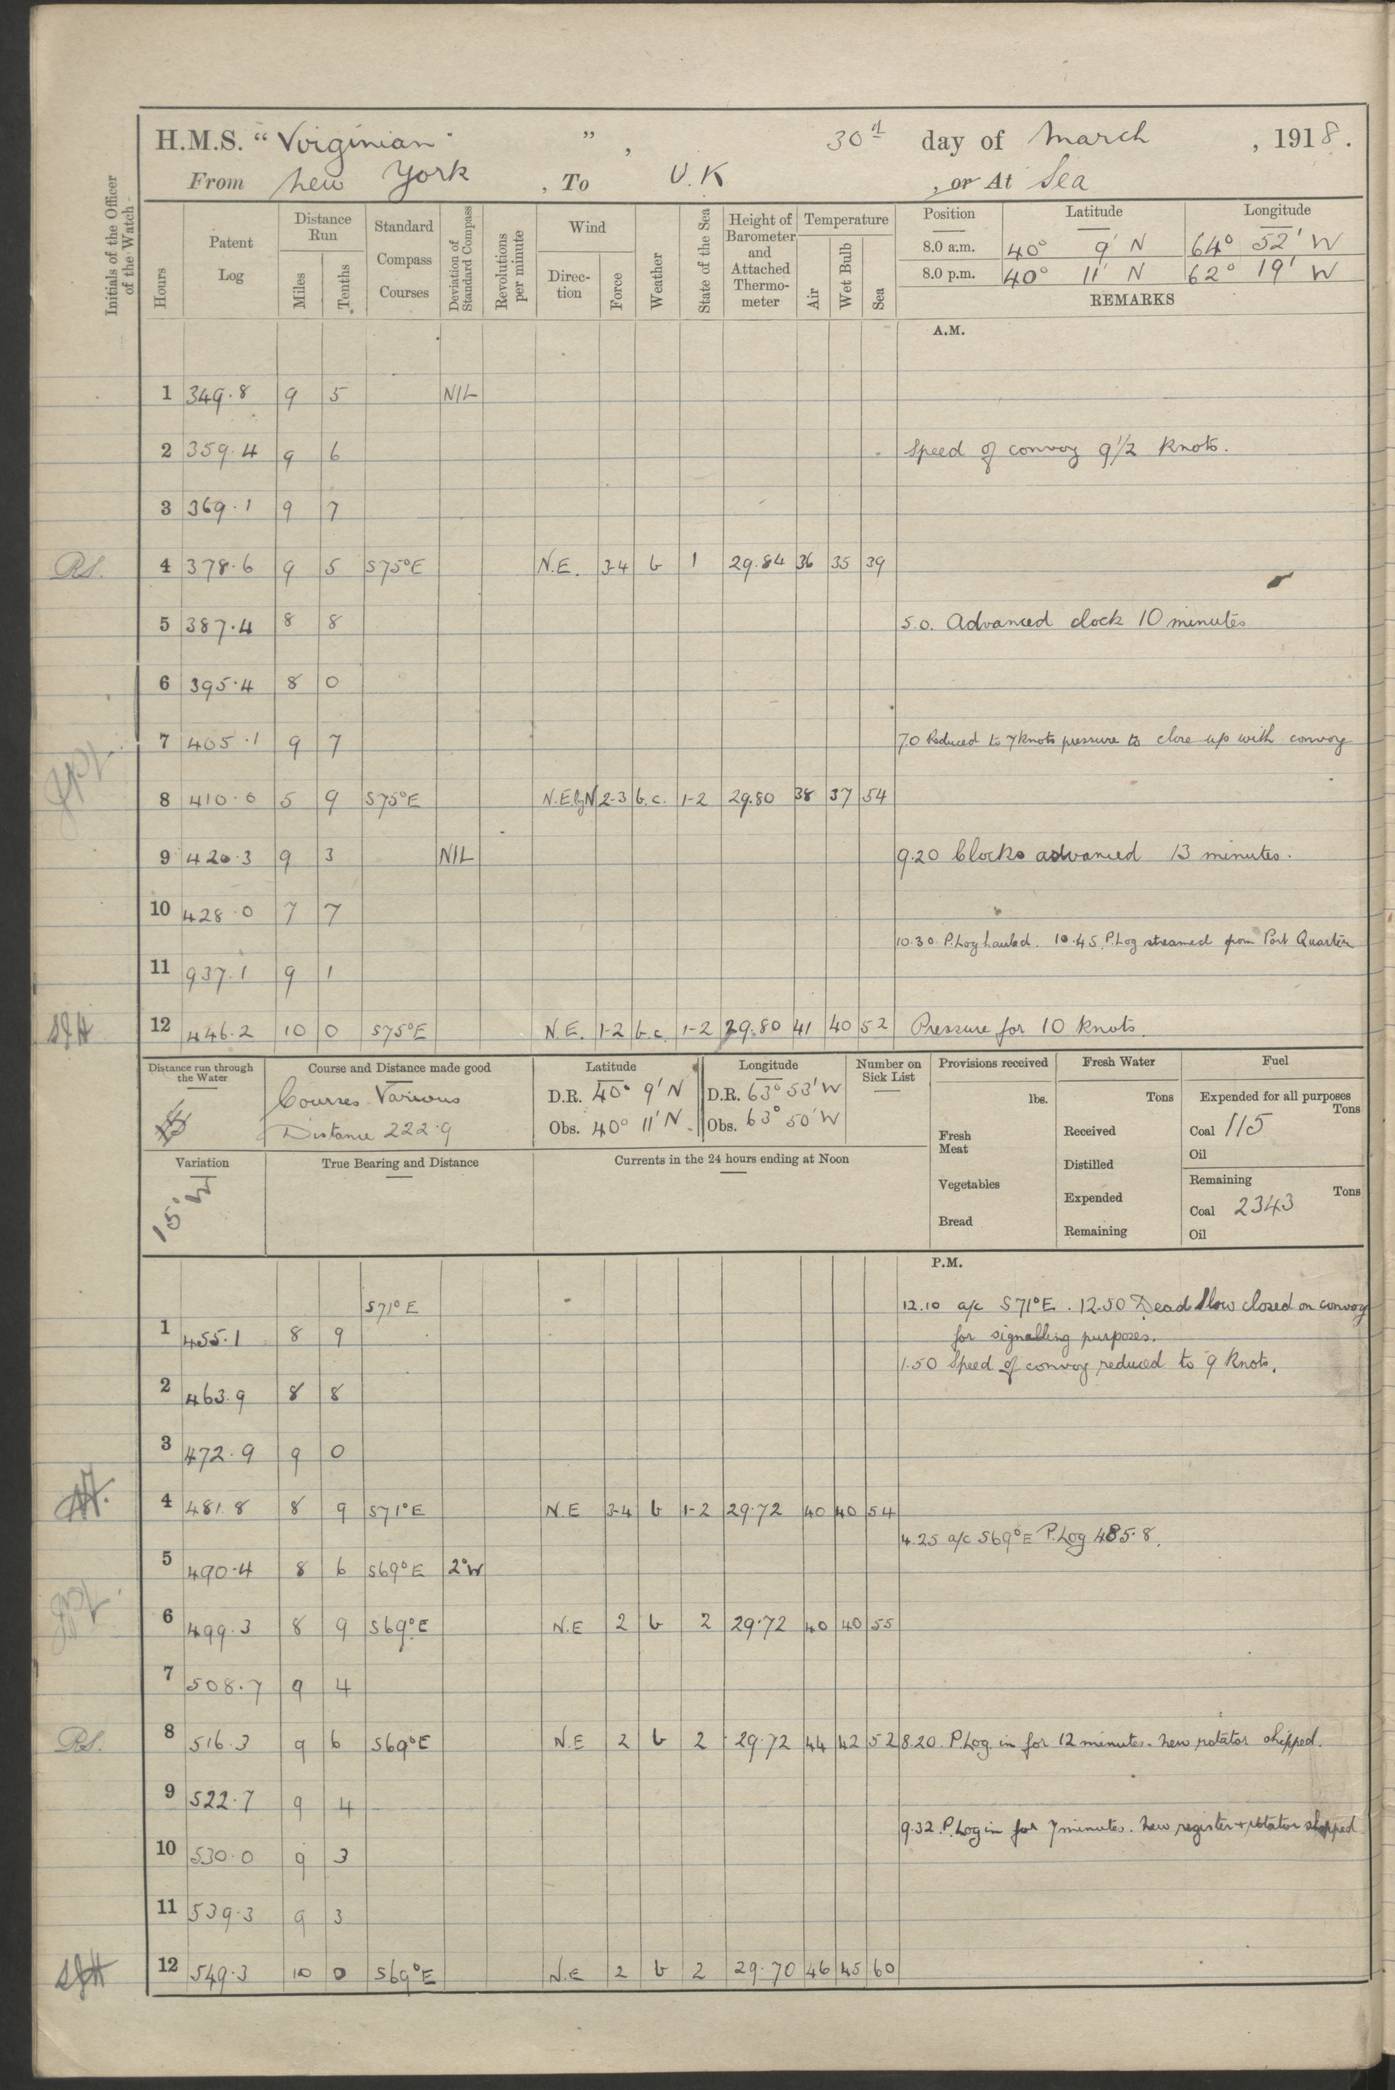 H.M.S. "Virginian" ", 30th day of March, 1918.
From New York, To U.K, or At Sea
Initials of the Officer of the Watch
Hours
Patent Log
Distance Run
Miles
Tenths
Standard Compass Courses
Deviation of Standard Compass
Revolutions per minute
Wind
Direction
Force
Weather
State of the Sea
Height of Barometer and Attached Thermometer
Temperature
Air
Wet Bulb
Sea
Position Latitude Longitude
8.0 a.m. 40° 9' N 64° 52' W
8.0 p.m. 40° 11' N 62° 19' W
REMARKS
A.M.
1 349.8 9 5 NIL
2 359.4 9 6 Speed of convoy 9 1/2 knots.
3 369.1 9 7
P.S. 4 378.6 9 5 S75°E N.E. 3-4 b 1 29.84 36 35 39
5 387.4 8 8 5.0. Advanced clock 10 minutes
6 395.4 8 0
7 405.1 9 7 7.0 Reduced to 7 knots pressure to close up with convoy
8 410.0 5 9 S75°E N.E.byN 2-3 b.c. 1-2 29.80 38 37 54
9 420.3 9 3 NIL 9.20 Clocks advanced 13 minutes.
10 428.0 7 7
10.30. P.Log hauled. 10.45. P.Log streamed from Port Quarter
11 937.1 9 1
12 446.2 10 0 S75°E N.E. 1-2 b.c. 1-2 29.80 41 40 52 Pressure for 10 knots.
Distance run through the Water
Course and Distance made good
Courses Various
Distance 222.9
Latitude
D.R. 40° 9' N
Obs. 40° 11' N
Longitude
D.R. 63° 53' W
Obs. 63° 50' W
Number on Sick List
Provisions received
lbs.
Fresh Meat
Vegetables
Bread
Fresh Water
Tons
Received
Distilled
Expended
Remaining
Fuel
Expended for all purposes
Tons
Coal 115
Oil
Remaining
Tons
Coal 2343
Oil
Variation
15° W
True Bearing and Distance
Currents in the 24 hours ending at Noon
P.M.
S71°E 12.10 a/c S71°E. 12.50 Dead Slow closed on convoy
1 455.1 8 9 for signalling purposes.
1.50 Speed of convoy reduced to 9 knots.
2 463.9 8 8
3 472.9 9 0
4 481.8 8 9 S71°E N.E 3-4 b 1-2 29.72 40 40 54
4.25 a/c S69°E P.Log 485.8.
5 490.4 8 6 S69°E 2°W
6 499.3 8 9 S69°E N.E 2 b 2 29.72 40 40 55
7 508.7 9 4
P.S. 8 516.3 9 6 S69°E N.E 2 b 2 29.72 44 42 52 8.20. P.Log in for 12 minutes. New rotator shipped.
9 522.7 9 4
9.32. P.Log in for 7 minutes. New register + rotator shipped
10 530.0 9 3
11 539.3 9 3
12 549.3 10 0 S69°E N.E 2 b 2 29.70 46 45 60